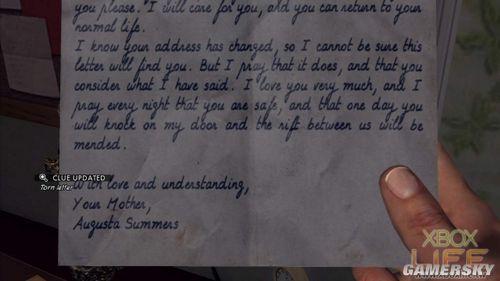 you please. I will care for you, and you can return to your
normal life.
I know your address has changed, so I cannot be sure this
letter will find you. But I pray that it does, and that you
consider what I have said. I love you very much, and I
pray every night that you are safe, and that one day you
will knock on my door and the rift between us will be
mended.
CLUE UPDATED
Torn letter
With love and understanding,
Your Mother,
Augusta Summers
XBOX
LIFE
GAMERSKY